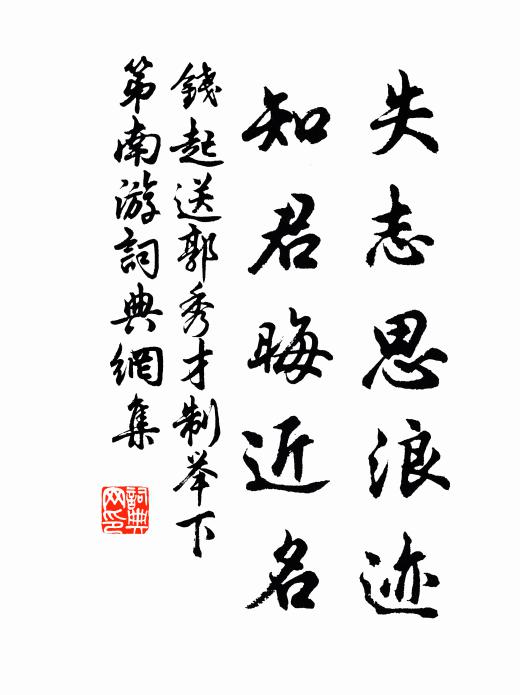 失志思浪迹
知君晦近名
錢起送郭秀才制举下
第南游詞典網集
詞典网印